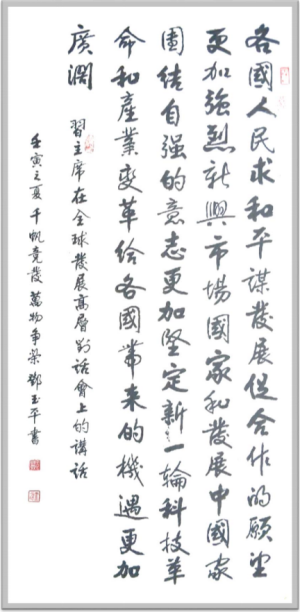 各國人民求和平謀發展促合作的願望
更加強烈新興市場國家和發展中國家
團結自强的意志更加堅定新一輪科技革
命和產業變革給各國帶來的機遇更加
廣濶 習主席在全球發展高層對話會上的講話
壬寅之夏千帆竞發萬物争榮鄧玉平書